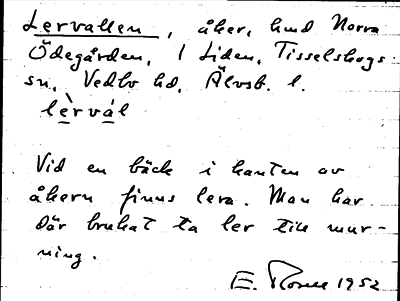 Lervallen, åker, hmd Norra
Ödegården, i Liden, Tisselskogs
sn, Vedbo hd, Älvsb. l.
lèrvál
Vid en bäck i kanten av
åkern finns lera. Man har
där brukat ta ler till mur-
ning.
E. 1952